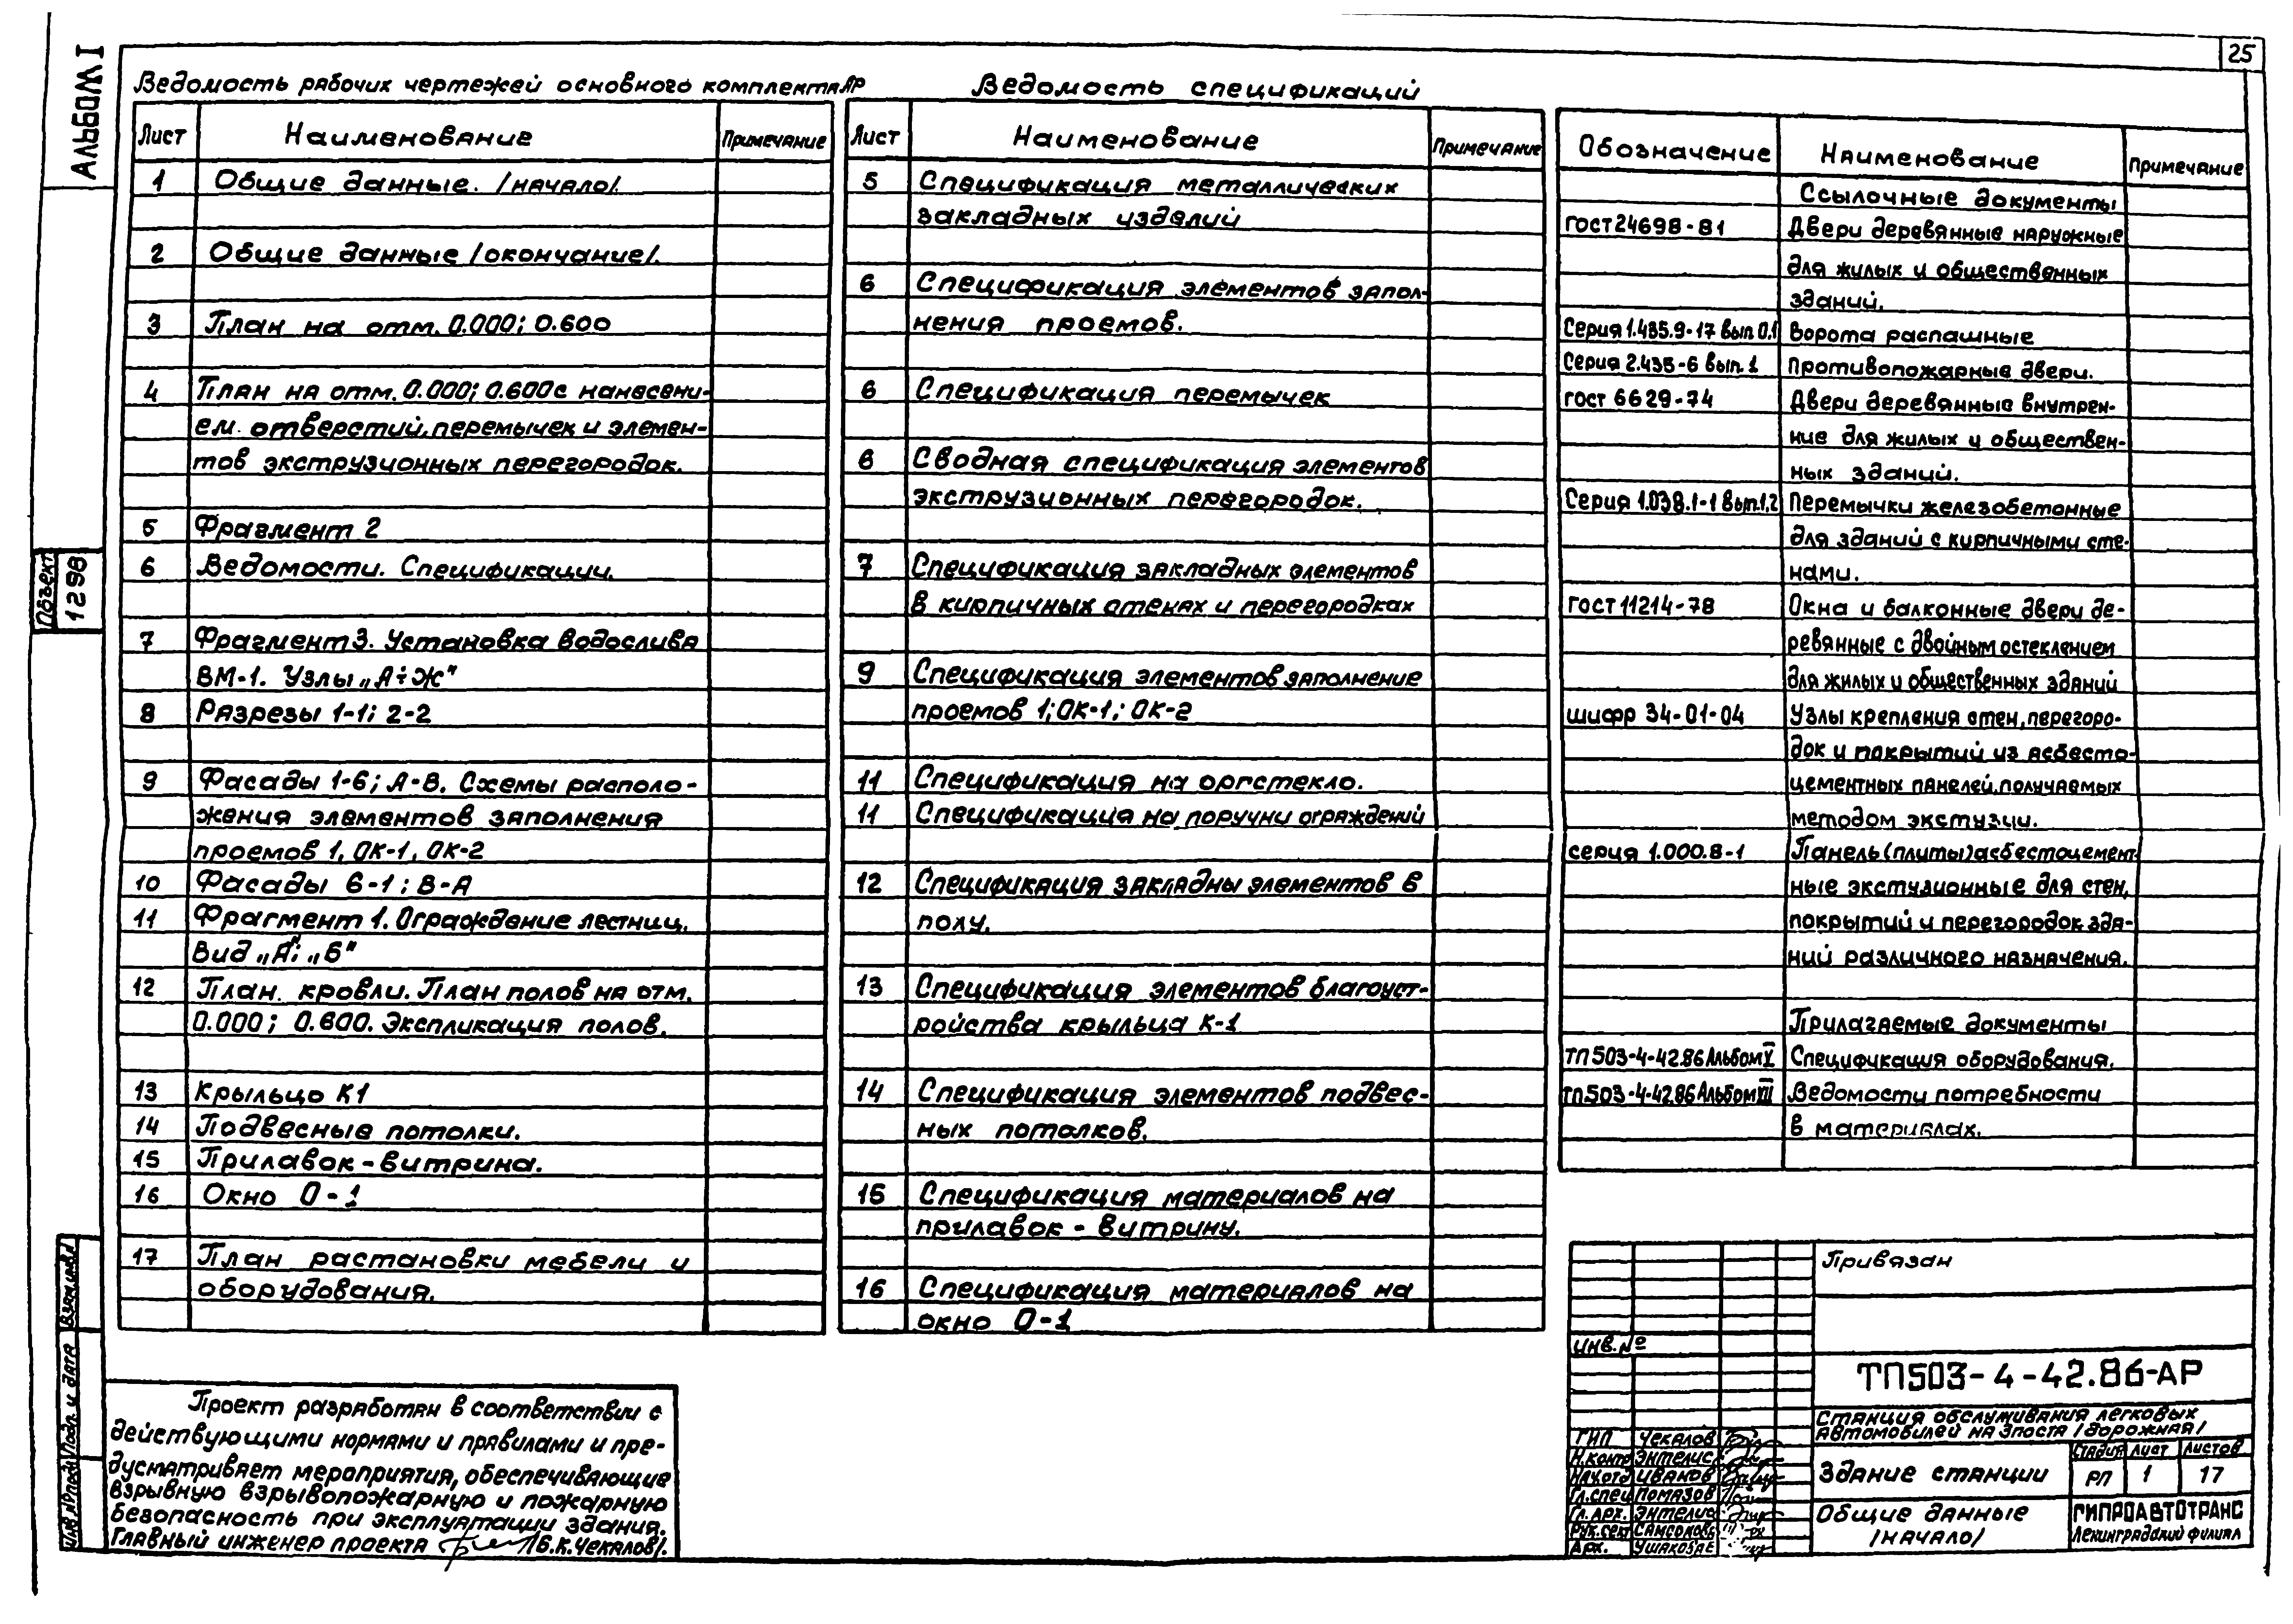 25
Альбом I
Ведомость рабочих чертежей основного комплекта АР
Лист Наименование Примечание
1 Общие данные. /начало/.
2 Общие данные /окончание/.
3 План на отм. 0.000; 0.600
4 План на отм. 0.000; 0.600 с нанесени-
ем отверстий, перемычек и элемен-
тов экструзионных перегородок.
5 Фрагмент 2
6 Ведомости. Спецификации.
7 Фрагмент 3. Установка водослива
ВМ-1. Узлы „А÷Ж"
8 Разрезы 1-1; 2-2
9 Фасады 1-6; А-В. Схемы располо-
жения элементов заполнения
проемов 1, ОК-1, ОК-2
10 Фасады 6-1; В-А
11 Фрагмент 1. Ограждение лестниц.
Вид „А"; „Б"
12 План кровли. План полов на отм.
0.000; 0.600. Экспликация полов.
13 Крыльцо К1
14 Подвесные потолки.
15 Прилавок-витрина.
16 Окно О-1
17 План растановки мебели и
оборудования.
Ведомость спецификаций
Лист Наименование Примечание
5 Спецификация металлических
закладных изделий
6 Спецификация элементов запол-
нения проемов.
6 Спецификация перемычек
6 Сводная спецификация элементов
экструзионных перегородок.
7 Спецификация закладных элементов
в кирпичных стенах и перегородках
9 Спецификация элементов заполнение
проемов 1; ОК-1; ОК-2
11 Спецификация на оргстекло.
11 Спецификация на поручни ограждений
12 Спецификация закладны элементов в
полу.
13 Спецификация элементов благоуст-
ройства крыльца К-1
14 Спецификация элементов подвес-
ных потолков.
15 Спецификация материалов на
прилавок-витрину.
16 Спецификация материалов на
окно О-1
Обозначение Наименование Примечание
Ссылочные документы
ГОСТ 24698-81 Двери деревянные наружные
для жилых и общественных
зданий.
Серия 1.435.9-17 вып. 0,1 Ворота распашные
Серия 2.435-6 вып. 1 Противопожарные двери.
ГОСТ 6629-74 Двери деревянные внутрен-
ние для жилых и обществен-
ных зданий.
Серия 1.038.1-1 вып.1,2 Перемычки железобетонные
для зданий с кирпичными сте-
нами.
ГОСТ 11214-78 Окна и балконные двери де-
ревянные с двойным остеклением
для жилых и общественных зданий
шифр 34-01-04 Узлы крепления стен, перегоро-
док и покрытий из асбесто-
цементных панелей, получаемых
методом экстузии.
серия 1.000.8-1 Панель (плиты) асбестоцемент-
ные экстузионные для стен,
покрытий и перегородок зда-
ний различного назначения.
Прилагаемые документы
ТП503-4-42.86 Альбом V Спецификация оборудования.
ТП503-4-42.86 Альбом VII Ведомости потребности
в материалах.
Объект
1298
Взам.инв.N
Подп. и дата
Инв.№ подл.
Проект разработан в соответствии с
действующими нормами и правилами и пре-
дусматривает мероприятия, обеспечивающие
взрывную взрывопожарную и пожарную
безопасность при эксплуатации здания.
Главный инженер проекта /Б.К.Чекалов/.
Привязан
инв.№
ТП503-4-42.86-АР
Станция обслуживания легковых
автомобилей на 3 поста /дорожная/
ГИП Чекалов
Н.контр Энтелис
Нач.отд Иванов
Гл.спец Помазов
Гл.арх. Энтелис
Рук.сект Самсонова
Арх. Ушакова Е
Здание станции
Стадия Лист Листов
РП 1 17
Общие данные
/начало/
ГИПРОАВТОТРАНС
Ленинградский филиал